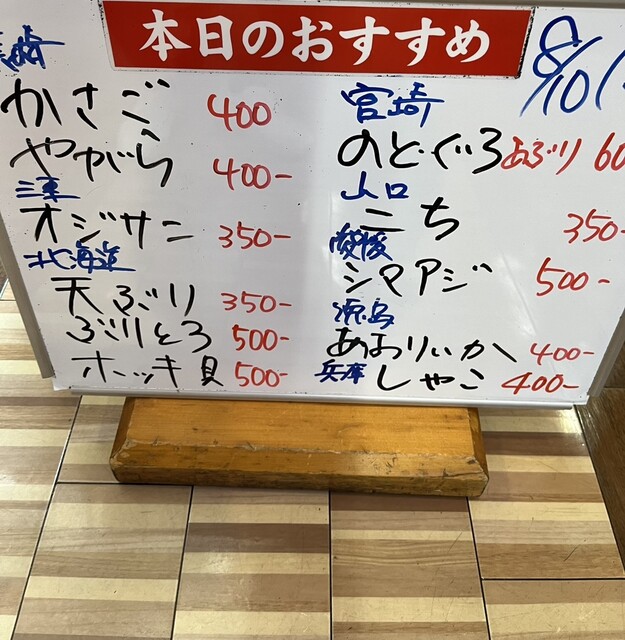 本日のおすすめ
8/10(
長崎
かさご 400
やがら 400-
三重
オジサン 350-
北海道
天ぶり 350-
ぶりとろ 500-
ホッキ貝 500-
宮崎
のどぐろあぶり 60
山口
こち 350-
シマアジ 500-
あおりいか 400-
兵庫 しゃこ 400-